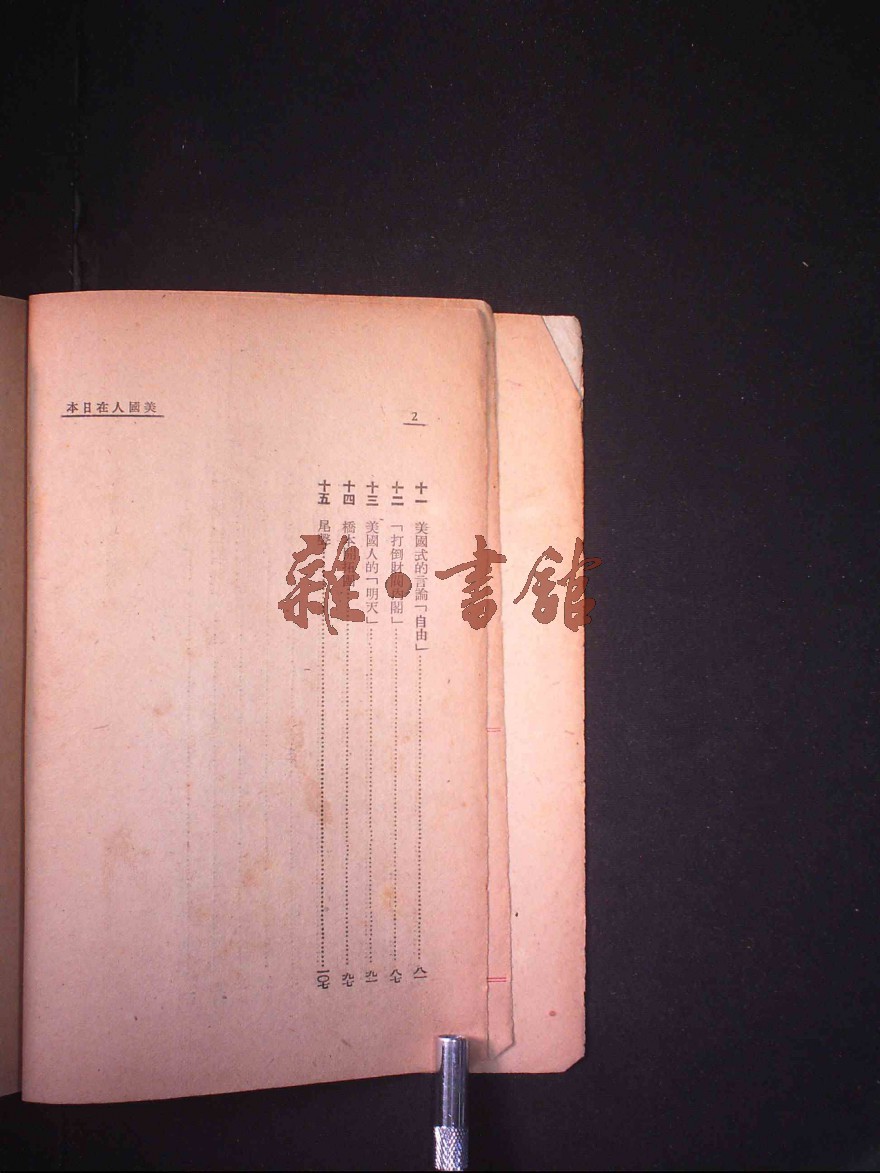 美國人在日本
2
十一 美國式的言論「自由」 八一
十二 「打倒財閥內閣」 八七
十三 美國人的「明天」 九一
十四 橋本 九七
十五 尾聲 一〇七
雜·書館